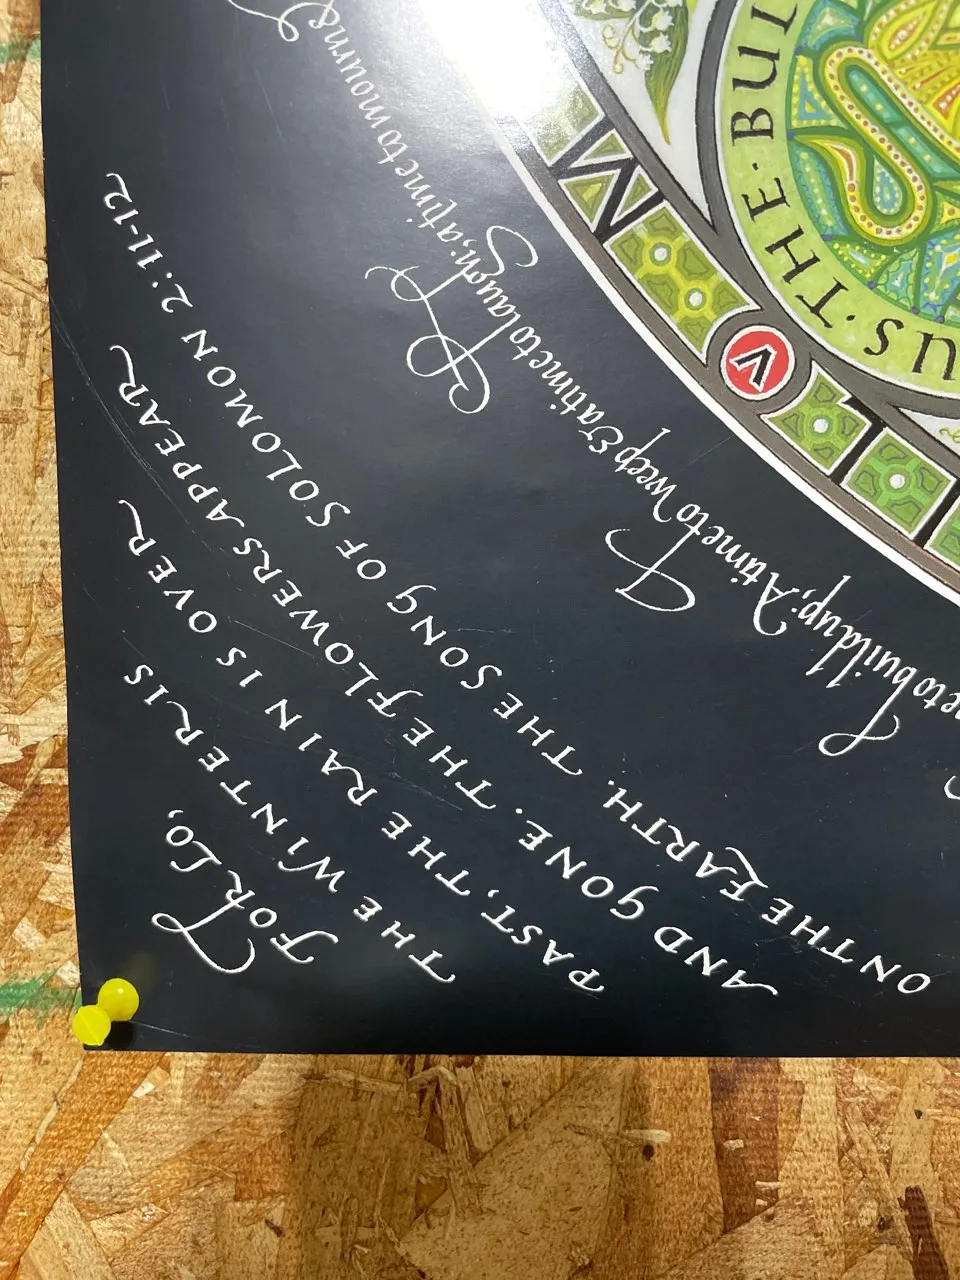 FOR LO,
THE WINTER IS
PAST, THE RAIN IS OVER
AND GONE. THE FLOWERS APPEAR
ON THE EARTH. THE SONG OF SOLOMON 2:11-12
to build up; A time to weep & a time to laugh; a time to mourn &
IL V M
US·THE·BUI